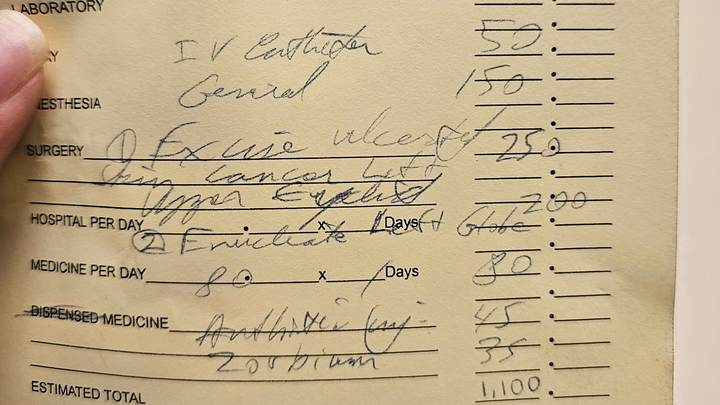 LABORATORY
AY IV Catheter 50
NESTHESIA General 150
SURGERY ① Excise ulcerated 250
Skin Cancer Left
Upper Eyelid 200
HOSPITAL PER DAY x Days
② Enucleate Left Globe
MEDICINE PER DAY 80 x 1 Days 80
DISPENSED MEDICINE Antibiotic inj. 45
Zorbium 35
ESTIMATED TOTAL 1,100